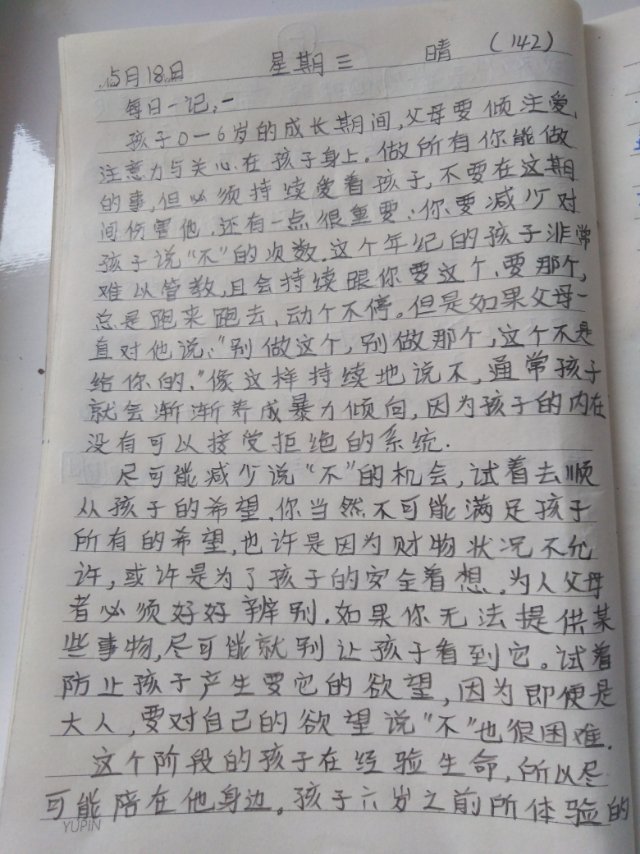 5月18日 星期三 晴 (142)
每日一记:一
孩子0—6岁的成长期间,父母要倾注爱,
注意力与关心在孩子身上。做所有你能做
的事,但必须持续爱着孩子,不要在这期
间伤害他,还有一点很重要:你要减少对
孩子说"不"的次数.这个年纪的孩子非常
难以管教,且会持续跟你要这个,要那个,
总是跑来跑去,动个不停。但是如果父母一
直对他说:"别做这个,别做那个,这个不是
给你的."像这样持续地说不,通常孩子
就会渐渐养成暴力倾向,因为孩子的内在
没有可以接受拒绝的系统.
尽可能减少说"不"的机会,试着去顺
从孩子的希望.你当然不可能满足孩子
所有的希望,也许是因为财物状况不允
许,或许是为了孩子的安全着想.为人父母
者必须好好辨别.如果你无法提供某
些事物,尽可能就别让孩子看到它。试着
防止孩子产生要它的欲望,因为即便是
大人,要对自己的欲望说"不"也很困难.
这个阶段的孩子在经验生命,所以尽
可能陪在他身边。孩子六岁之前所体验的
YUPIN